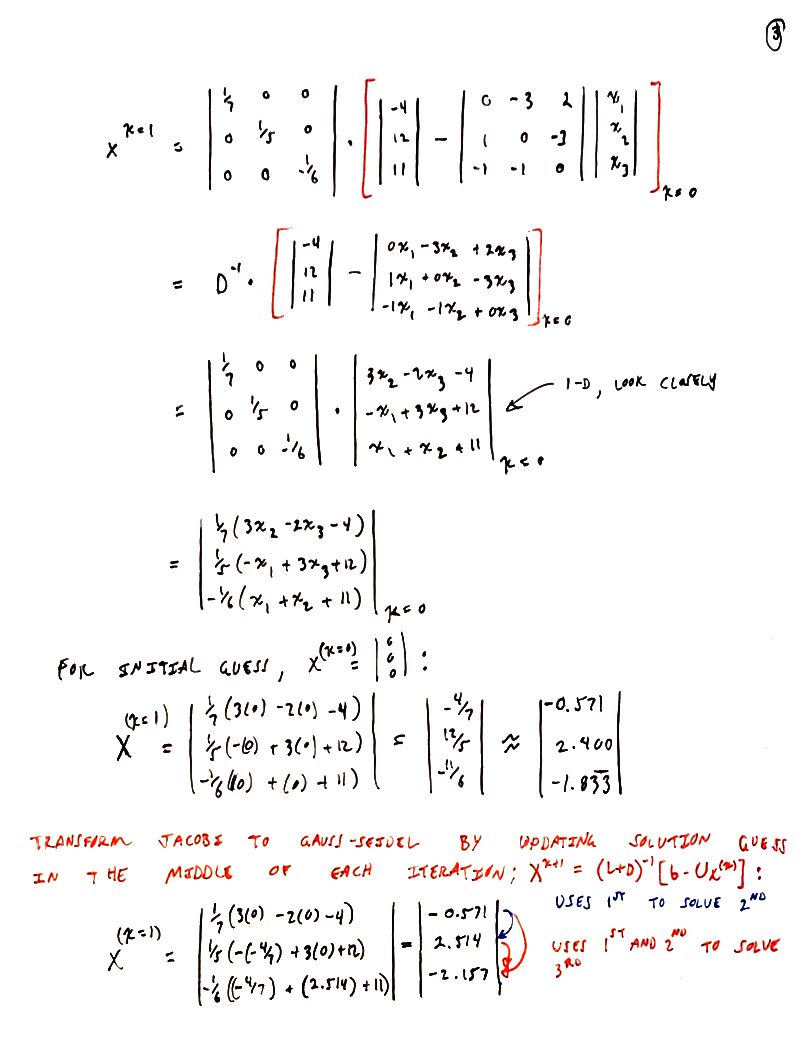 3
X^{k=1} = | 1/7 0 0 ; 0 1/5 0 ; 0 0 -1/6 | · [ | -4 ; 12 ; 11 | - | 0 -3 2 ; 1 0 -3 ; -1 -1 0 | | x₁ ; x₂ ; x₃ | ]_{k=0}
= D⁻¹ · [ | -4 ; 12 ; 11 | - | 0x₁ -3x₂ +2x₃ ; 1x₁ +0x₂ -3x₃ ; -1x₁ -1x₂ +0x₃ | ]_{k=0}
= | 1/7 0 0 ; 0 1/5 0 ; 0 0 -1/6 | · | 3x₂ -2x₃ -4 ; -x₁ +3x₃ +12 ; x₁ + x₂ + 11 |_{k=0} ← 1-D, LOOK CLOSELY
= | 1/7 (3x₂ -2x₃ -4) ; 1/5 (-x₁ + 3x₃ +12) ; -1/6 (x₁ + x₂ + 11) |_{k=0}
FOR INITIAL GUESS, X^{(k=0)} = | 0 ; 0 ; 0 | :
X^{(k=1)} = | 1/7 (3(0) -2(0) -4) ; 1/5 (-(0) + 3(0) +12) ; -1/6 ((0) + (0) + 11) | = | -4/7 ; 12/5 ; -11/6 | ≈ | -0.571 ; 2.400 ; -1.833̅ |
TRANSFORM JACOBI TO GAUSS-SEIDEL BY UPDATING SOLUTION GUESS
IN THE MIDDLE OF EACH ITERATION; X^{k+1} = (L+D)⁻¹ [b - Ux^{(k)}] :
X^{(k=1)} = | 1/7 (3(0) -2(0) -4) ; 1/5 (-(-4/7) + 3(0) +12) ; -1/6 ((-4/7) + (2.514) + 11) | = | -0.571 ; 2.514 ; -2.157 |
USES 1ST TO SOLVE 2ND
USES 1ST AND 2ND TO SOLVE
3RD